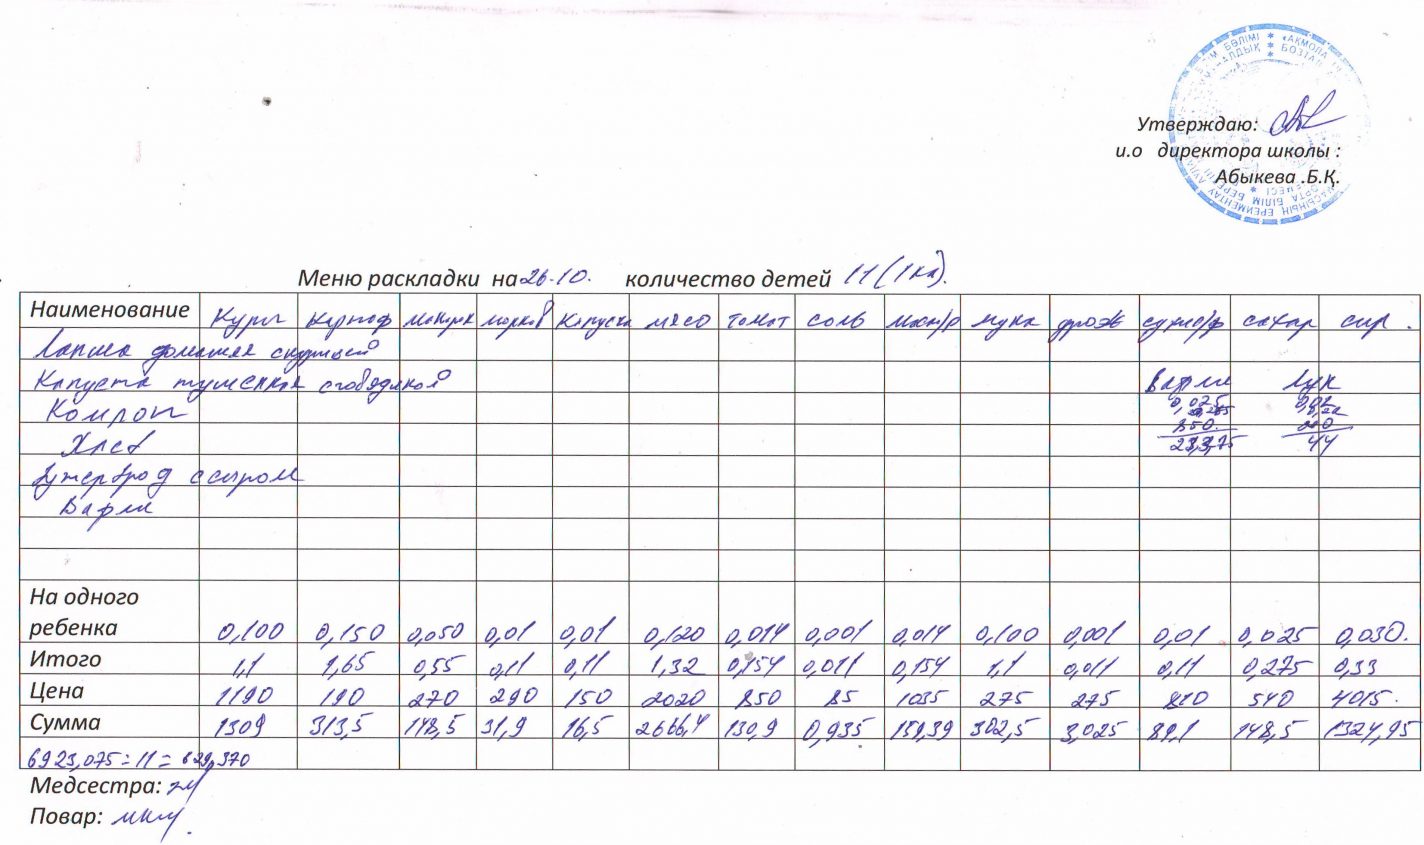 Утверждаю:
и.о директора школы :
Абыкева .Б.Қ.
Меню раскладки на 26.10. количество детей 11 (1 кл).
Наименование Куры картоф макарон морков капуста мясо томат соль масл/р мука дрож сухиеф сахар сыр.
Лапша домашняя с курицей
Капуста тушенная с говядиной Вафли Лук
Компот 0,025 0,02
Хлеб 850 200 44
Бутерброд с сыром
Вафли
На одного
ребенка 0,100 0,150 0,050 0,01 0,01 0,120 0,014 0,001 0,014 0,100 0,001 0,01 0,025 0,030.
Итого 1,1 1,65 0,55 0,11 0,11 1,32 0,154 0,011 0,154 1,1 0,011 0,11 0,275 0,33
Цена 1190 190 270 290 150 2020 850 85 1035 275 275 810 540 4015.
Сумма 1309 313,5 148,5 31,9 16,5 2666,4 130,9 0,935 159,39 302,5 3,025 89,1 148,5 1324,95
6923,075 : 11 = 629,370
Медсестра:
Повар: